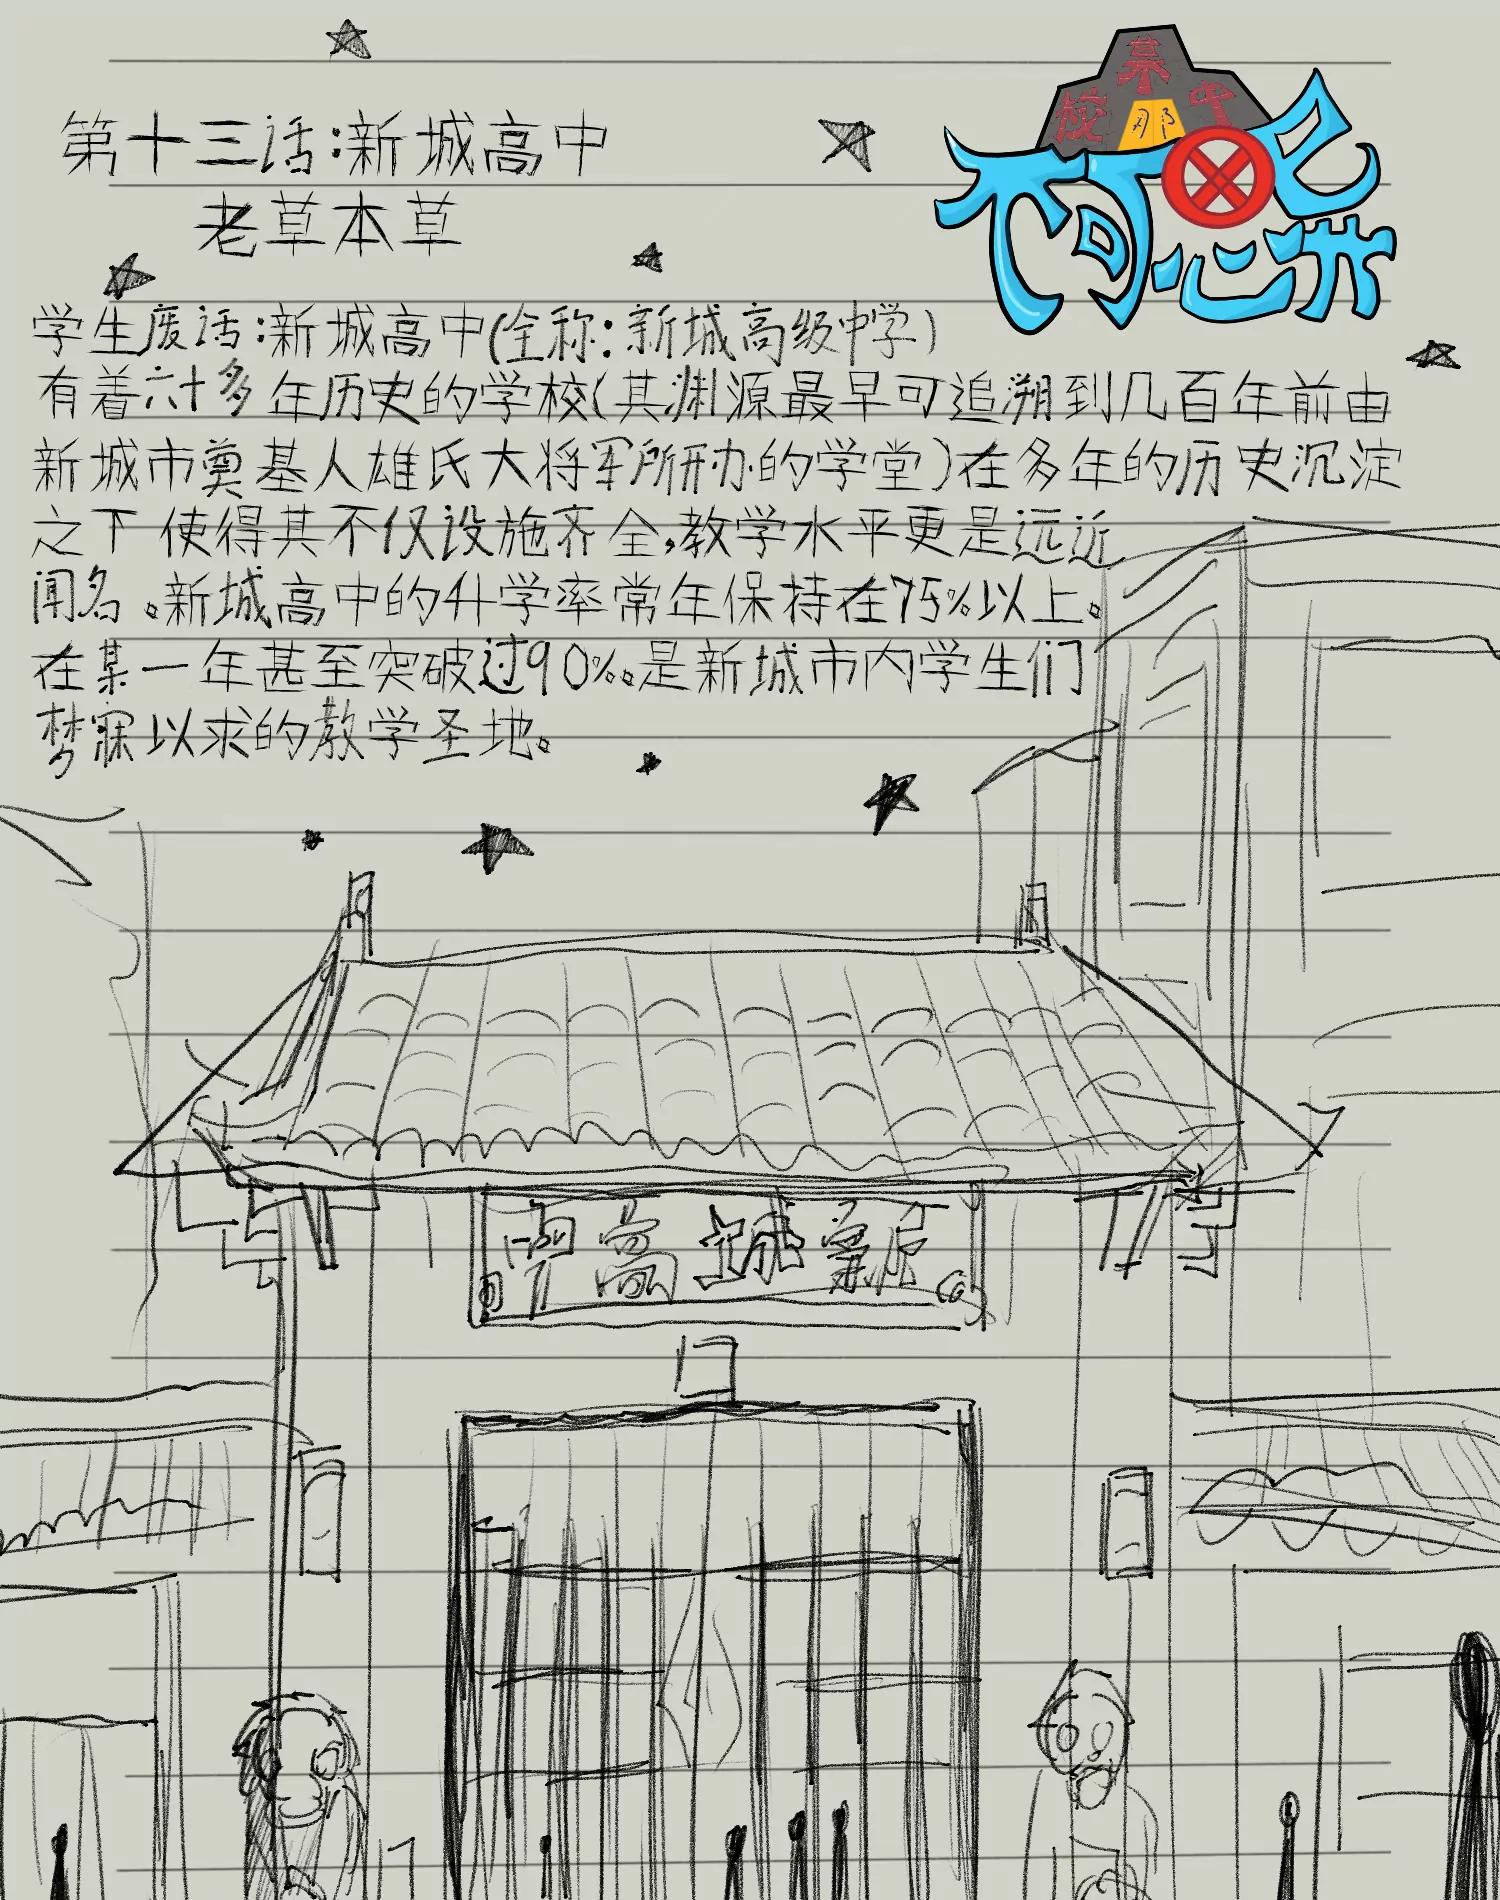 第十三话:新城高中
老草本草
学生废话:新城高中(全称:新城高级中学)
有着六十多年历史的学校(其渊源最早可追溯到几百年前由
新城市奠基人雄氏大将军所开办的学堂)在多年的历史沉淀
之下使得其不仅设施齐全,教学水平更是远近
闻名。新城高中的升学率常年保持在75%以上。
在某一年甚至突破过90%。是新城市内学生们
梦寐以求的教学圣地。
中高城新